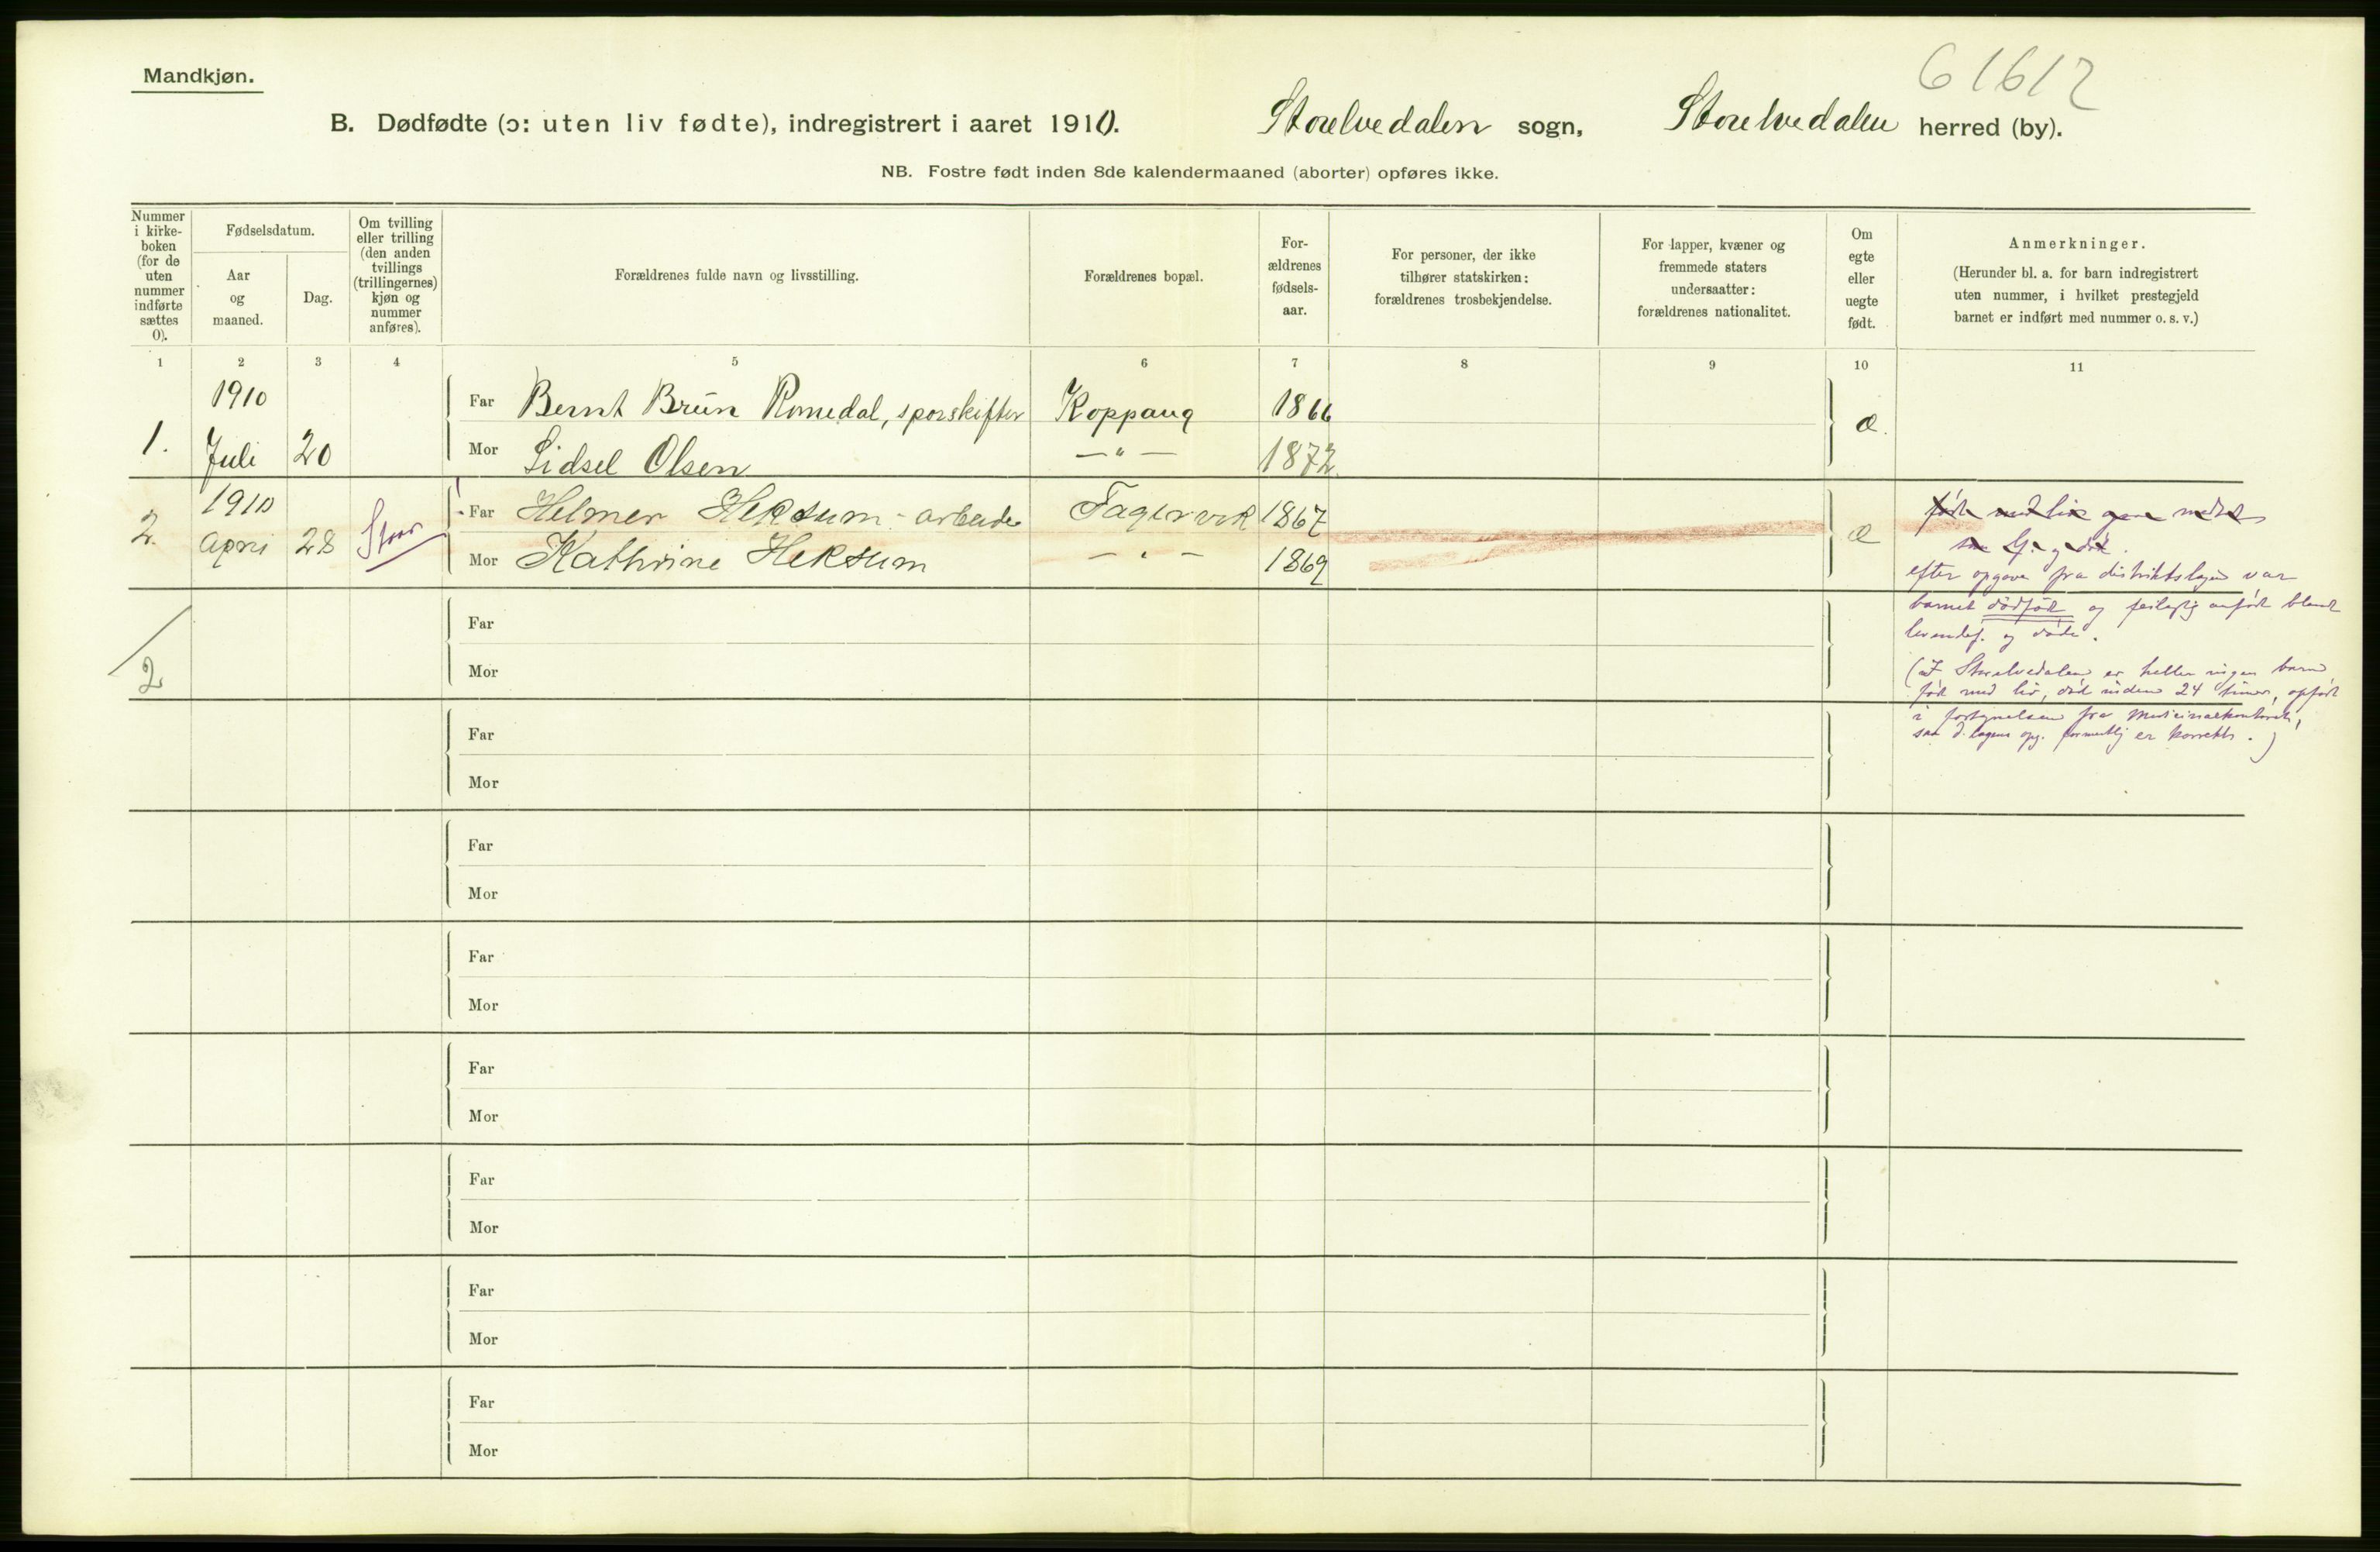 61612
Mandkjøn.
B. Dødfødte (ɔ: uten liv fødte), indregistrert i aaret 1910. Storelvedalen sogn, Storelvedalen herred (by).
NB. Fostre født inden 8de kalendermaaned (aborter) opføres ikke.
Nummer
i kirke-
boken
(for de
uten
nummer
indførte
sættes
0).
Fødselsdatum.
Aar
og
maaned.
Dag.
Om tvilling
eller trilling
(den anden
tvillings
(trillingernes)
kjøn og
nummer
anføres).
Forældrenes fulde navn og livsstilling.
Forældrenes bopæl.
For-
ældrenes
fødsels-
aar.
For personer, der ikke
tilhører statskirken:
forældrenes trosbekjendelse.
For lapper, kvæner og
fremmede staters
undersaatter:
forældrenes nationalitet.
Om
egte
eller
uegte
født.
Anmerkninger.
(Herunder bl. a. for barn indregistrert
uten nummer, i hvilket prestegjeld
barnet er indført med nummer o. s. v.)
1 2 3 4 5 6 7 8 9 10 11
1910
Far Bernt Brun Romedal, sporskifter Koppang 1866
1. Juli 20 Mor Lidsel Olsen — " — 1872 Æ.
1910
2. April 28 Svar Far Helmer Heksum - arbeider Fagervik 1867 Æ
Mor Kathrine Heksum — " — 1869
født med liv
efter opgave fra distriktslægen var
barnet dödfödt og feilagtig anført blandt
levendef. og døde.
(I Storelvedalen er heller ingen barn
født med liv, död inden 24 timer, opført
i fortegnelsen fra Medicinalkontoret,
saa d. lægens opg. formentlig er korrekt.)
2
Far
Mor
Far
Mor
Far
Mor
Far
Mor
Far
Mor
Far
Mor
Far
Mor
Far
Mor